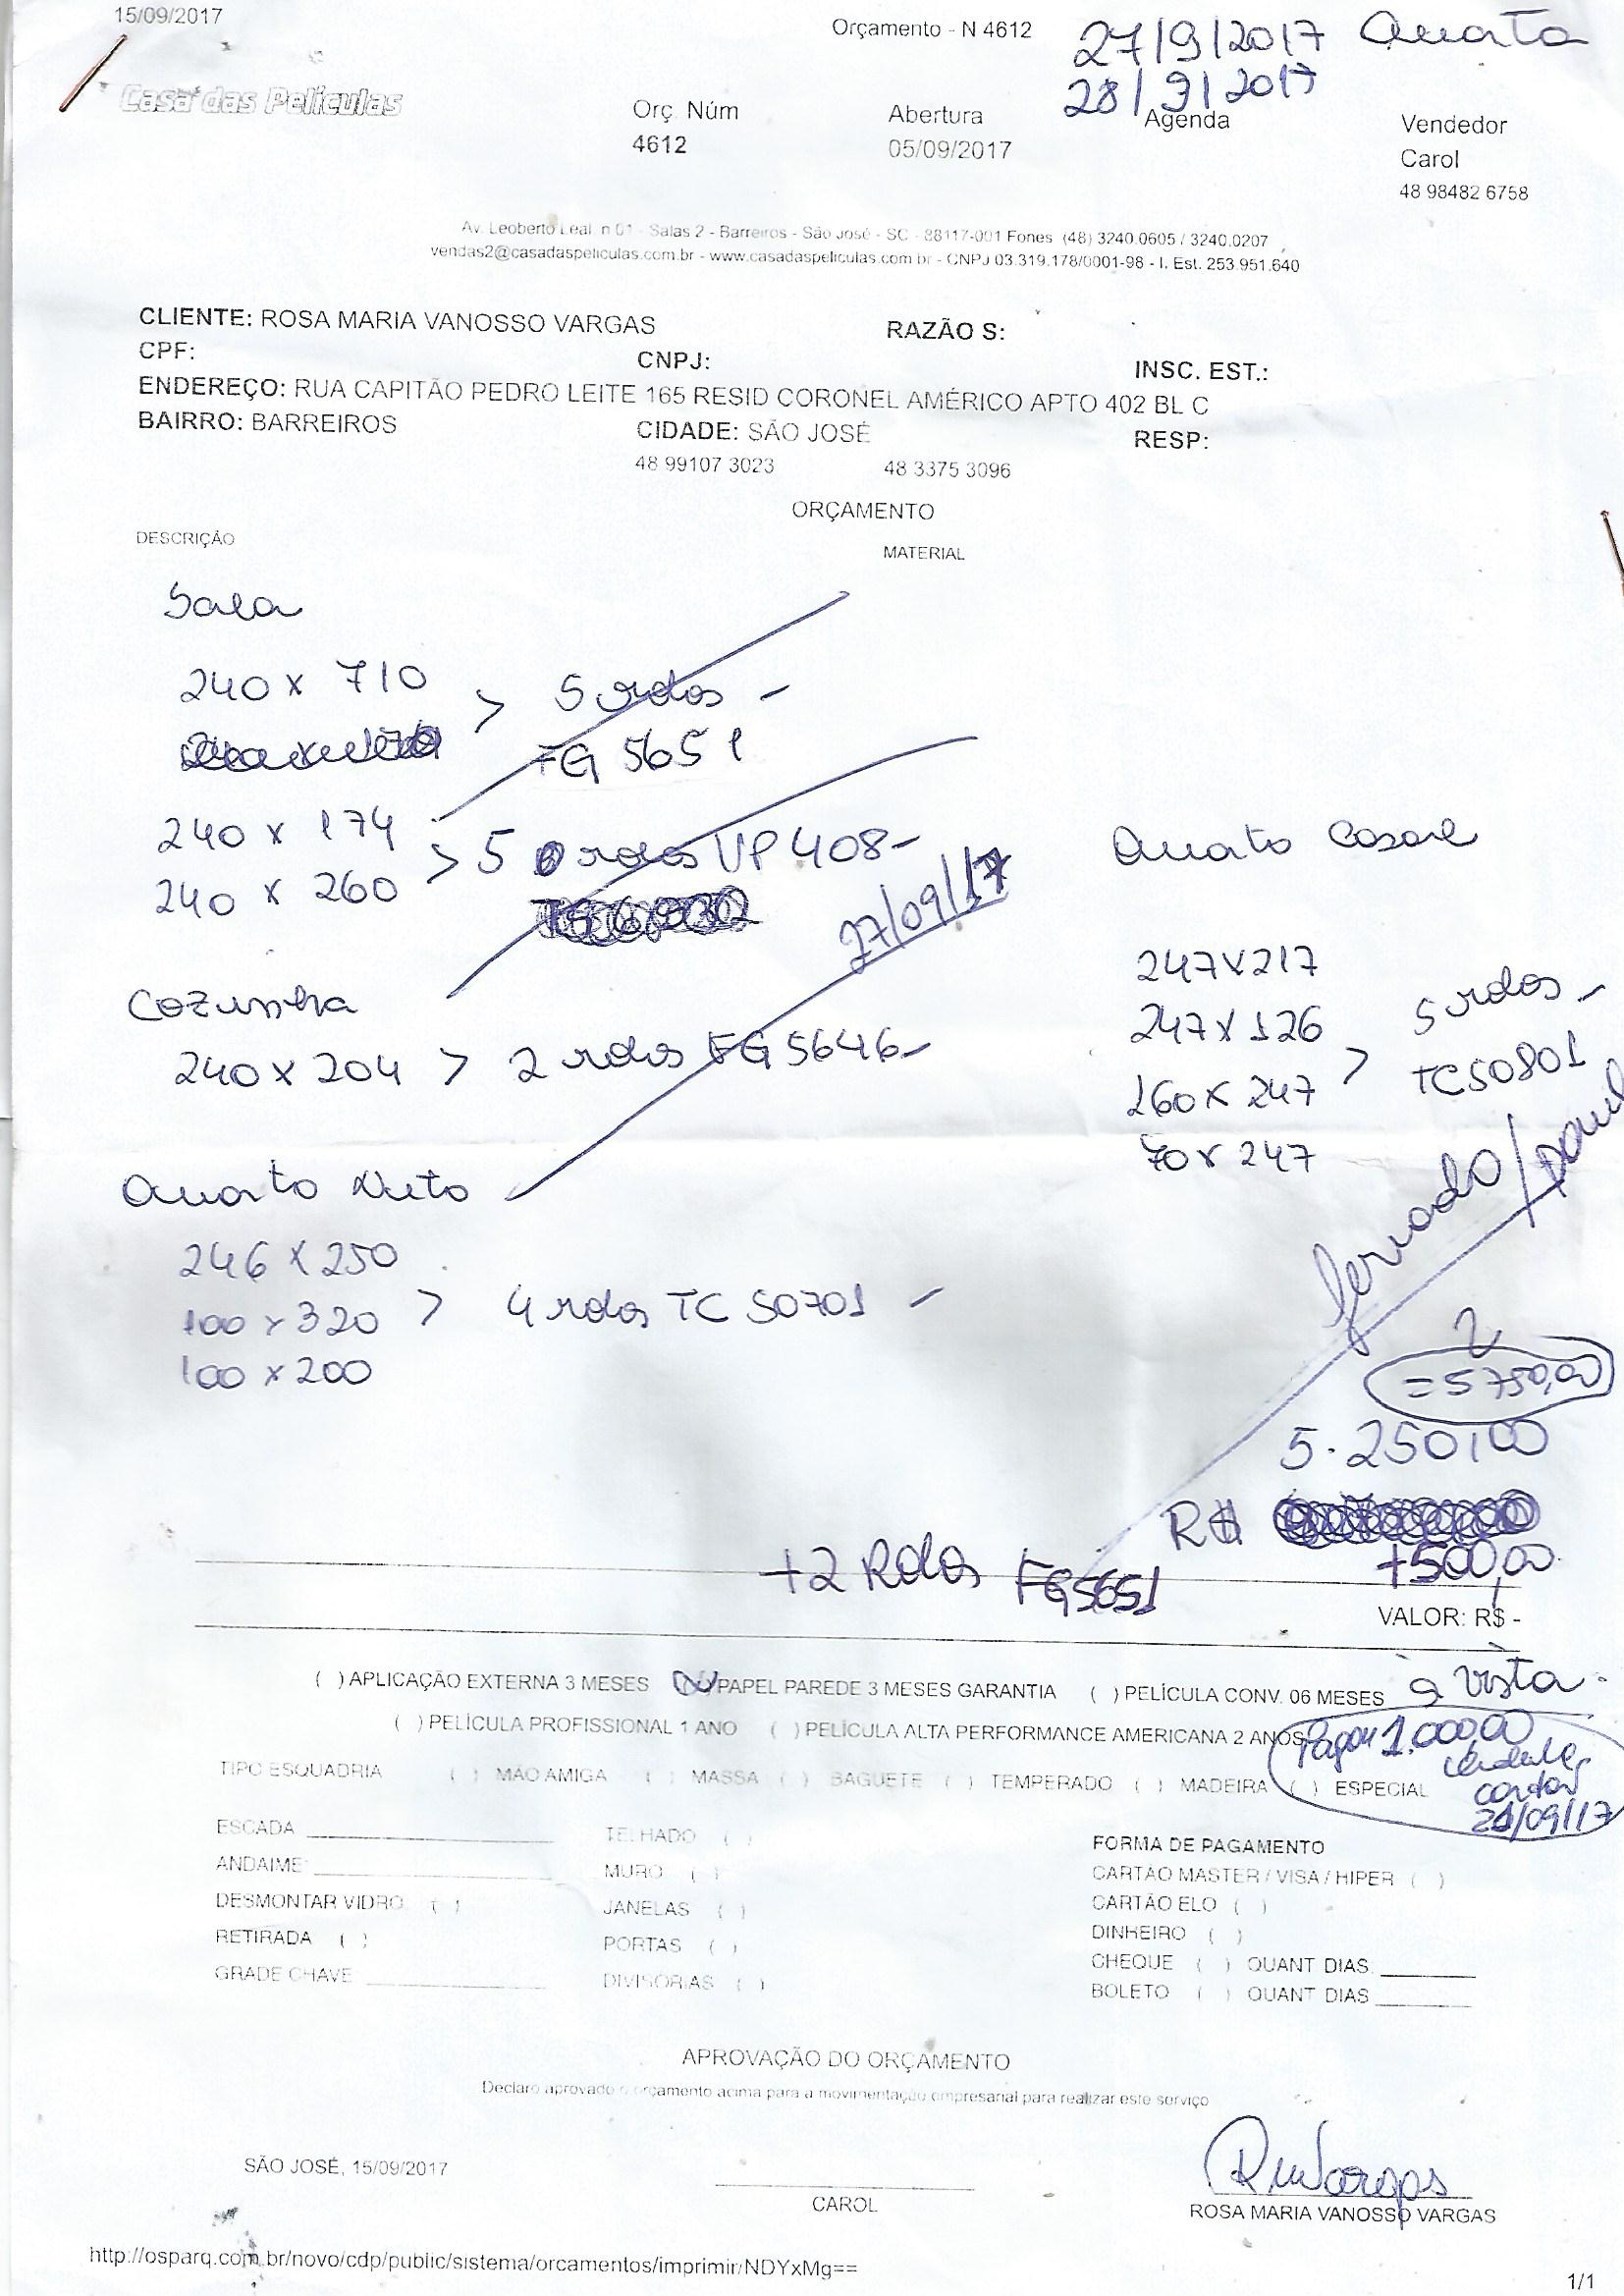 15/09/2017
Orçamento - N 4612
27/9/2017 Quarta
28/9/2017
Casa das Películas
Orç. Núm
Abertura
Agenda
Vendedor
4612
05/09/2017
Carol
48 98482 6758
Av. Leoberto Leal n 01 - Salas 2 - Barreiros - São José - SC - 88117-001 Fones (48) 3240.0605 / 3240.0207
vendas2@casadaspeliculas.com.br - www.casadaspeliculas.com.br - CNPJ 03.319.178/0001-98 - I. Est. 253.951.640
CLIENTE: ROSA MARIA VANOSSO VARGAS
RAZÃO S:
CPF:
CNPJ:
INSC. EST.:
ENDEREÇO: RUA CAPITÃO PEDRO LEITE 165 RESID CORONEL AMÉRICO APTO 402 BL C
BAIRRO: BARREIROS
CIDADE: SÃO JOSÉ
RESP:
48 99107 3023
48 3375 3096
ORÇAMENTO
DESCRIÇÃO
MATERIAL
Sala
240 x 710 > 5 rolos -
FG 5651
240 x 174
240 x 260 > 5 rolos VP 408 -
27/09/17
Cozinha
240 x 204 > 2 rolos FG 5646 -
Quarto Casal
247 x 217
247 x 126
160 x 247 > 5 rolos -
TC50801
70 x 247
Quarto Neto
246 x 250
100 x 320 > 4 rolos TC 50701 -
100 x 200
= 5750,00
5.250,00
R$
+500,00
+2 Rolos FG5651
VALOR: R$ -
( ) APLICAÇÃO EXTERNA 3 MESES (X) PAPEL PAREDE 3 MESES GARANTIA ( ) PELÍCULA CONV. 06 MESES
à vista
( ) PELÍCULA PROFISSIONAL 1 ANO ( ) PELÍCULA ALTA PERFORMANCE AMERICANA 2 ANOS
Pagou 1.000,00
21/09/17
TIPO ESQUADRIA ( ) MÃO AMIGA ( ) MASSA ( ) BAGUETE ( ) TEMPERADO ( ) MADEIRA ( ) ESPECIAL
ESCADA
TELHADO ( )
FORMA DE PAGAMENTO
ANDAIME:
MURO ( )
CARTÃO MASTER / VISA / HIPER ( )
DESMONTAR VIDRO ( )
JANELAS ( )
CARTÃO ELO ( )
RETIRADA ( )
PORTAS ( )
DINHEIRO ( )
GRADE CHAVE
DIVISÓRIAS ( )
CHEQUE ( ) QUANT DIAS:
BOLETO ( ) QUANT DIAS
APROVAÇÃO DO ORÇAMENTO
Declaro aprovado o orçamento acima para a movimentação empresarial para realizar este serviço
SÃO JOSÉ, 15/09/2017
CAROL
RMVargas
ROSA MARIA VANOSSO VARGAS
http://osparq.com.br/novo/cdp/public/sistema/orcamentos/imprimir/NDYxMg==
1/1